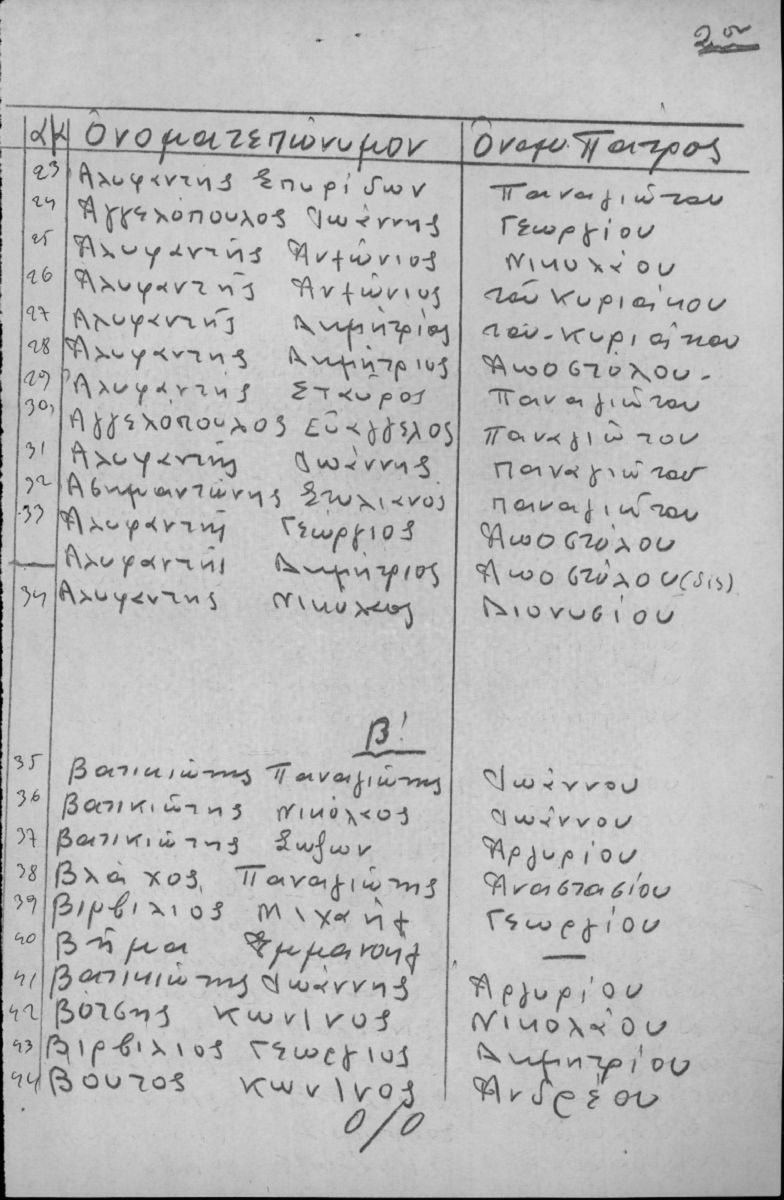 2ον
α/α Ὀνοματεπώνυμον Ὀνομ. Πατρός
23 Αλυφαντής Σπυρίδων Παναγιώτου
24 Αγγελόπουλος Ιωάννης Γεωργίου
25 Αλυφαντής Αντώνιος Νικολάου
26 Αλυφαντής Αντώνιος τοῦ Κυριάκου
27 Αλυφαντής Δημήτριος τοῦ - Κυριάκου
28 Αλυφαντής Δημήτριος Αποστόλου -
29 Αλυφαντής Σταῦρος Παναγιώτου
30 Αγγελόπουλος Εὐάγγελος Παναγιώτου
31 Αλυφαντής Ιωάννης Παναγιώτου
32 Ασημαντώνης Στυλιανός Παναγιώτου
33 Αλυφαντής Γεώργιος Αποστόλου
— Αλυφαντής Δημήτριος Αποστόλου (δις)
34 Αλυφαντής Νικόλαος Διονυσίου
Β!
35 Βατικιώτης Παναγιώτης Ιωάννου
36 Βατικιώτης Νικόλαος Ιωάννου
37 Βατικιώτης Σώζων Αργυρίου
38 Βλάχος Παναγιώτης Αναστασίου
39 Βιρβίλιος Μιχαήλ Γεωργίου
40 Βῆμα Εμμανουήλ —
41 Βατικιώτης Ιωάννης Αργυρίου
42 Βότσης Κων/νος Νικολάου
43 Βιρβίλιος Γεώργιος Δημητρίου
44 Βούτος Κων/νος Ανδρέου
0/0